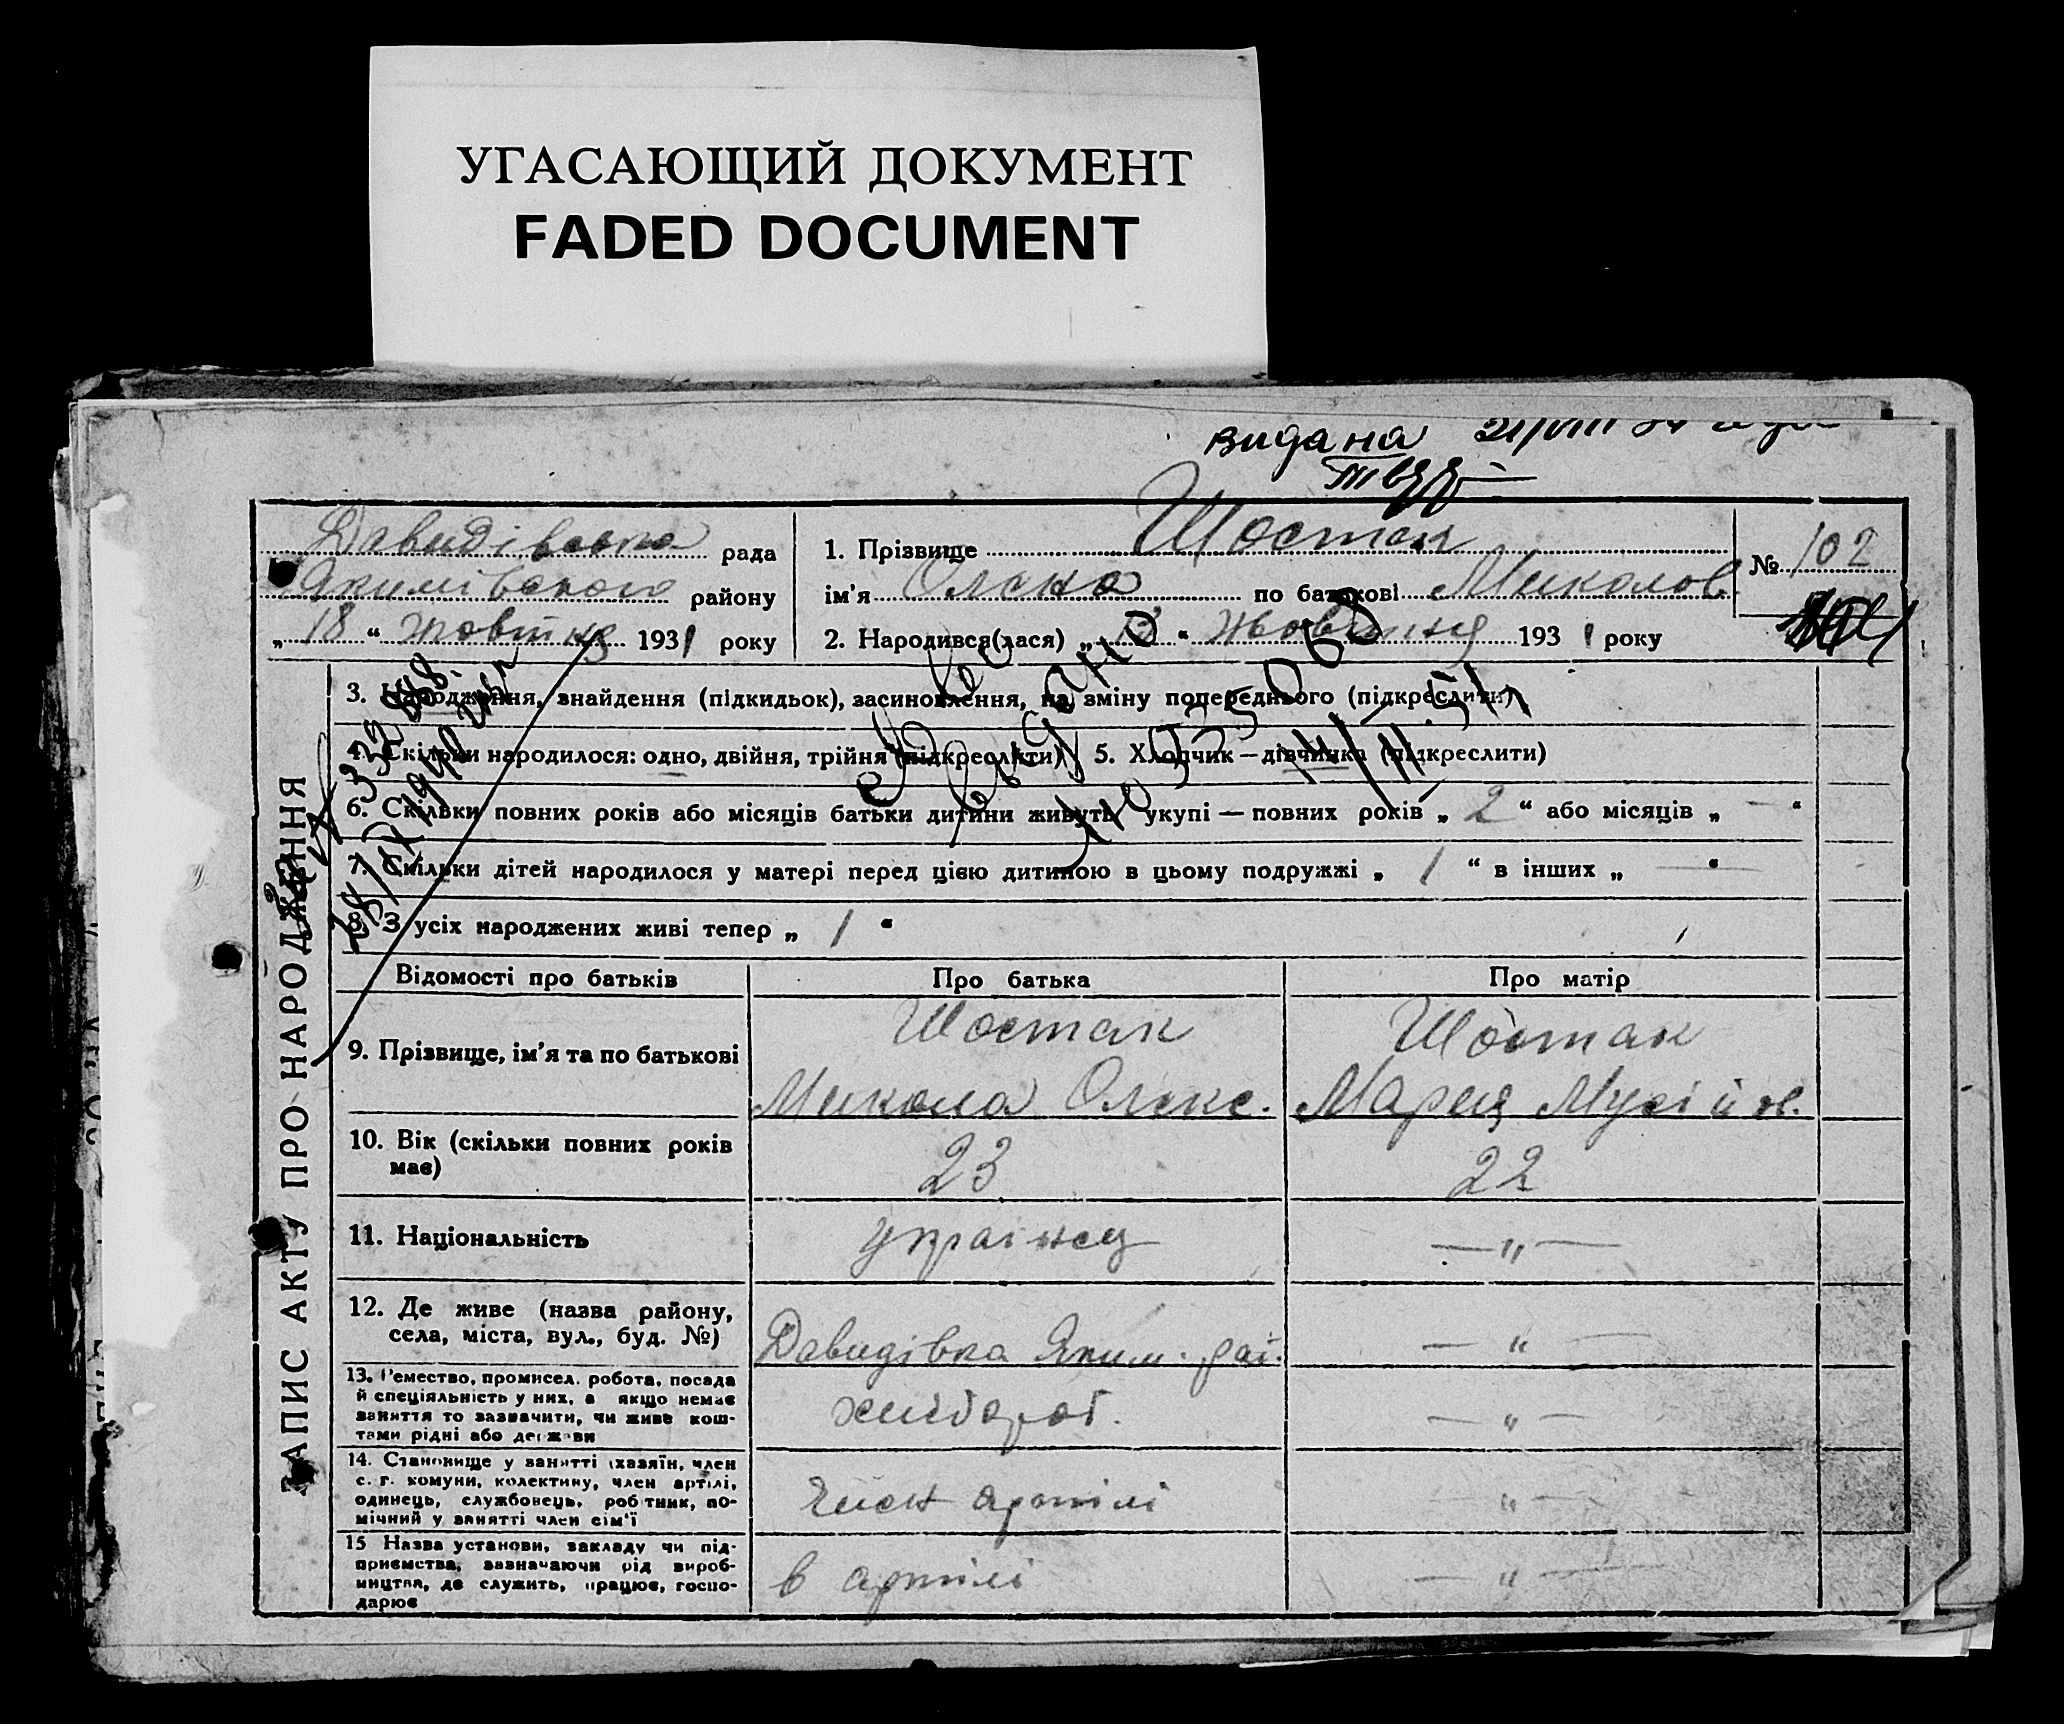 УГАСАЮЩИЙ ДОКУМЕНТ
FADED DOCUMENT
видана
Давидівська рада
Якимівського району
„18“ жовтня 1931 року
1. Прізвище Шостак
ім'я Олена по батькові Миколов.
2. Народився(лася) „ “ Жовтня 1931 року
№ 102
ЗАПИС АКТУ ПРО НАРОДЖЕННЯ
3. Народження, знайдення (підкидьок), засиновлення, на зміну попереднього (підкреслити)
4. Скільки народилося: одно, двійня, трійня (підкреслити) 5. Хлопчик — дівчинка (підкреслити)
6. Скільки повних років або місяців батьки дитини живуть укупі — повних років „ 2 “ або місяців „ — “
7. Скільки дітей народилося у матері перед цією дитиною в цьому подружжі „ 1 “ в інших „ — “
8. З усіх народжених живі тепер „ 1 “
Відомості про батьків Про батька Про матір
9. Прізвище, ім'я та по батькові
Шостак
Микола Олекс.
Шостак
Мария Мусійов.
10. Вік (скільки повних років
має)
23 22
11. Національність українец — „ —
12. Де живе (назва району,
села, міста, вул., буд. №)
Давидівка Яким. рай. — „ —
13. Ремество, промисел, робота, посада
й спеціяльність у них, а якщо немає
заняття то зазначити, чи живе кош-
тами рідні або держави
хлібороб. — „ —
14. Становище у занятті (хазяїн, член
с. г. комуни, колективу, член артілі,
одинець, службовець, робітник, по-
мічний у занятті член сім'ї
Член артілі — „ —
15 Назва установи, закладу чи під-
приємства, зазначаючи рід вироб-
ництва, де служить, працює, госпо-
дарює
в артілі — „ —